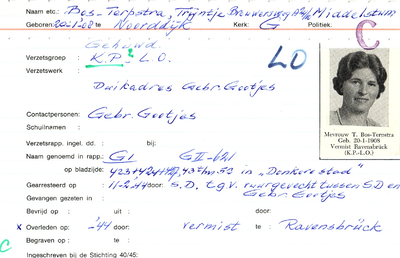 Naam etc.: Bos-Terpstra, Trijntje Brouwersweg Middelstum
Geboren: 20-1-08 te Noorddijk Kerk: G Politiek:
C
Gehuwd.
Verzetsgroep : K.P.? L.O.
LO
Verzetswerk :
Duikadres Gebr. Gootjes
Contactpersonen: Gebr. Gootjes
Schuilnamen :
Verzetsrapp. ingel. dd. : door: :
Naam genoemd in rapp.: G1 GII-621
op bladzijde: 43 t/m 52 in "Donkere stad"
Gearresteerd op : 11-2-'44 door: S.D. t.g.v. vuurgevecht tussen S.D en
Gevangen gezeten in : Gebr. Gootjes
Bevrijd op : uit : door:
x Overleden op: -'44 door: vermist te : Ravensbrück
Begraven op : te :
C
Ingeschreven bij de Stichting 40/45:
Mevrouw T. Bos-Terpstra
Geb. 20-1-1908
Vermist Ravensbrück
(K.P.-L.O.)